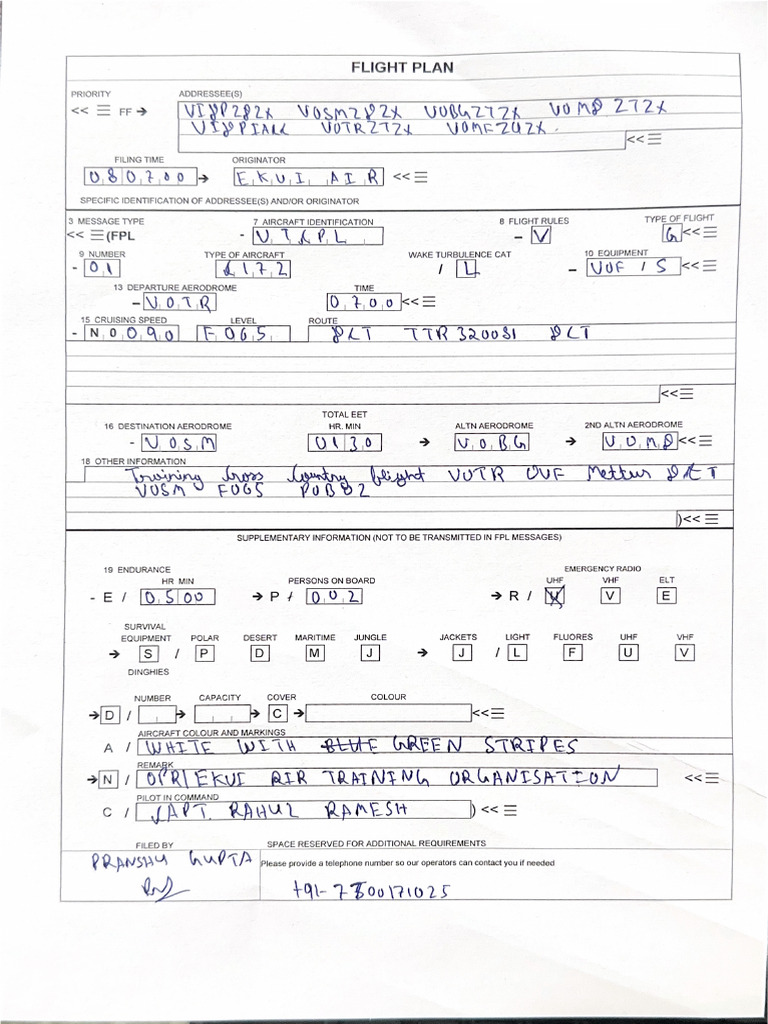 FLIGHT PLAN
PRIORITY ADDRESSEE(S)
<< ≡ FF → VOSM2 VOBG2T2X
<< ≡
FILING TIME ORIGINATOR
080700 → EKUI AIR << ≡
SPECIFIC IDENTIFICATION OF ADDRESSEE(S) AND/OR ORIGINATOR
3 MESSAGE TYPE 7 AIRCRAFT IDENTIFICATION 8 FLIGHT RULES TYPE OF FLIGHT
<< ≡ (FPL - - V G << ≡
9 NUMBER TYPE OF AIRCRAFT WAKE TURBULENCE CAT 10 EQUIPMENT
- 01 C172 / L - VOF / S << ≡
13 DEPARTURE AERODROME TIME
- VOTR 0700 << ≡
15 CRUISING SPEED LEVEL ROUTE
- N0090 F065 DCT TTR320081 DCT
<< ≡
TOTAL EET
16 DESTINATION AERODROME HR. MIN ALTN AERODROME 2ND ALTN AERODROME
- VOSM 0130 → VOBG → VOMD << ≡
18 OTHER INFORMATION
Training Cross Country flight VOTR OVF Mettur DCT
VOSM F065 POB02
)<< ≡
SUPPLEMENTARY INFORMATION (NOT TO BE TRANSMITTED IN FPL MESSAGES)
19 ENDURANCE EMERGENCY RADIO
HR MIN PERSONS ON BOARD UHF VHF ELT
- E / 0500 → P / 002 → R / U V E
SURVIVAL
EQUIPMENT POLAR DESERT MARITIME JUNGLE JACKETS LIGHT FLUORES UHF VHF
→ S / P D M J → J / L F U V
DINGHIES
NUMBER CAPACITY COVER COLOUR
→ D / → → C → << ≡
AIRCRAFT COLOUR AND MARKINGS
A / WHITE WITH BLUE GREEN STRIPES
REMARK
→ N / OPR/EKUI AIR TRAINING ORGANISATION << ≡
PILOT IN COMMAND
C / CAPT. RAHUL RAMESH ) << ≡
FILED BY SPACE RESERVED FOR ADDITIONAL REQUIREMENTS
PRANSHU GUPTA Please provide a telephone number so our operators can contact you if needed